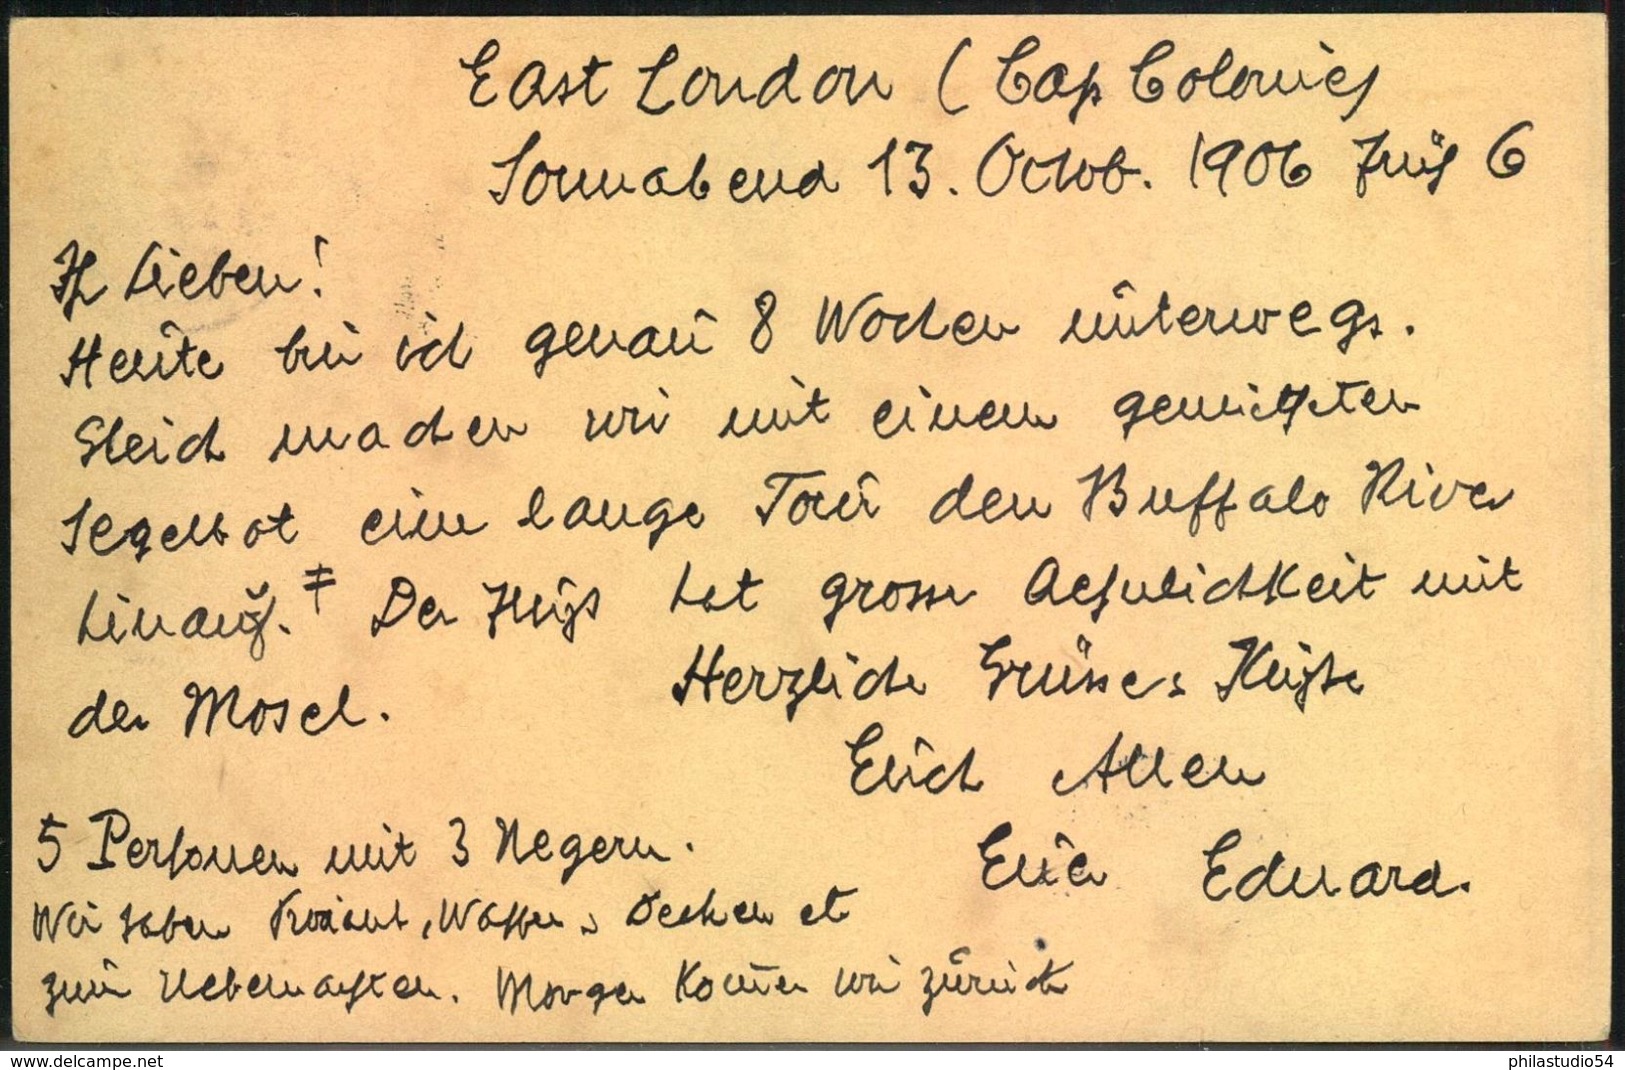 East London (Cap Colonie)
Sonnabend 13. Octob. 1906 früh 6
Ihr Lieben!
Heute bin ich genau 8 Wochen unterwegs.
Gleich machen wir mit einem gemieteten
Segelboot eine lange Tour den Buffalo River
hinauf. ‡ Der Fluss hat grosse Aehnlichkeit mit
der Mosel.
Herzliche Grüsse u Küsse
Euch Allen
Euer Eduard.
5 Personen mit 3 Negern.
Wir haben Proviant, Waffen u Decken etc
zum Uebernachten. Morgen kom̄en wir zurück
www.delcampe.net
philastudio54